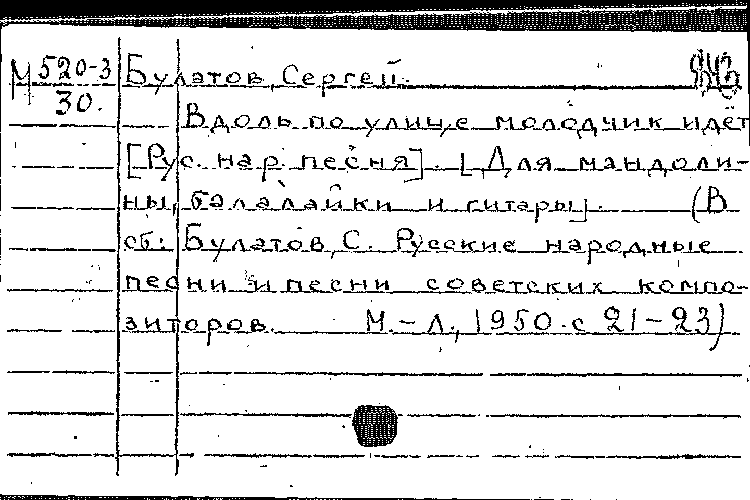 М 520-3 Булатов, Сергей.
30.
Вдоль по улице молодчик идёт
[Рус. нар. песня]. [Для мандоли-
ны, балалайки и гитары]. (В
сб: Булатов, С. Русские народные
песни и песни советских компо-
зиторов. М.-Л., 1950. с 21-23)